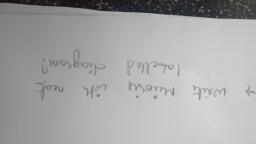 → write Meiosis with neat
labelled diagram?